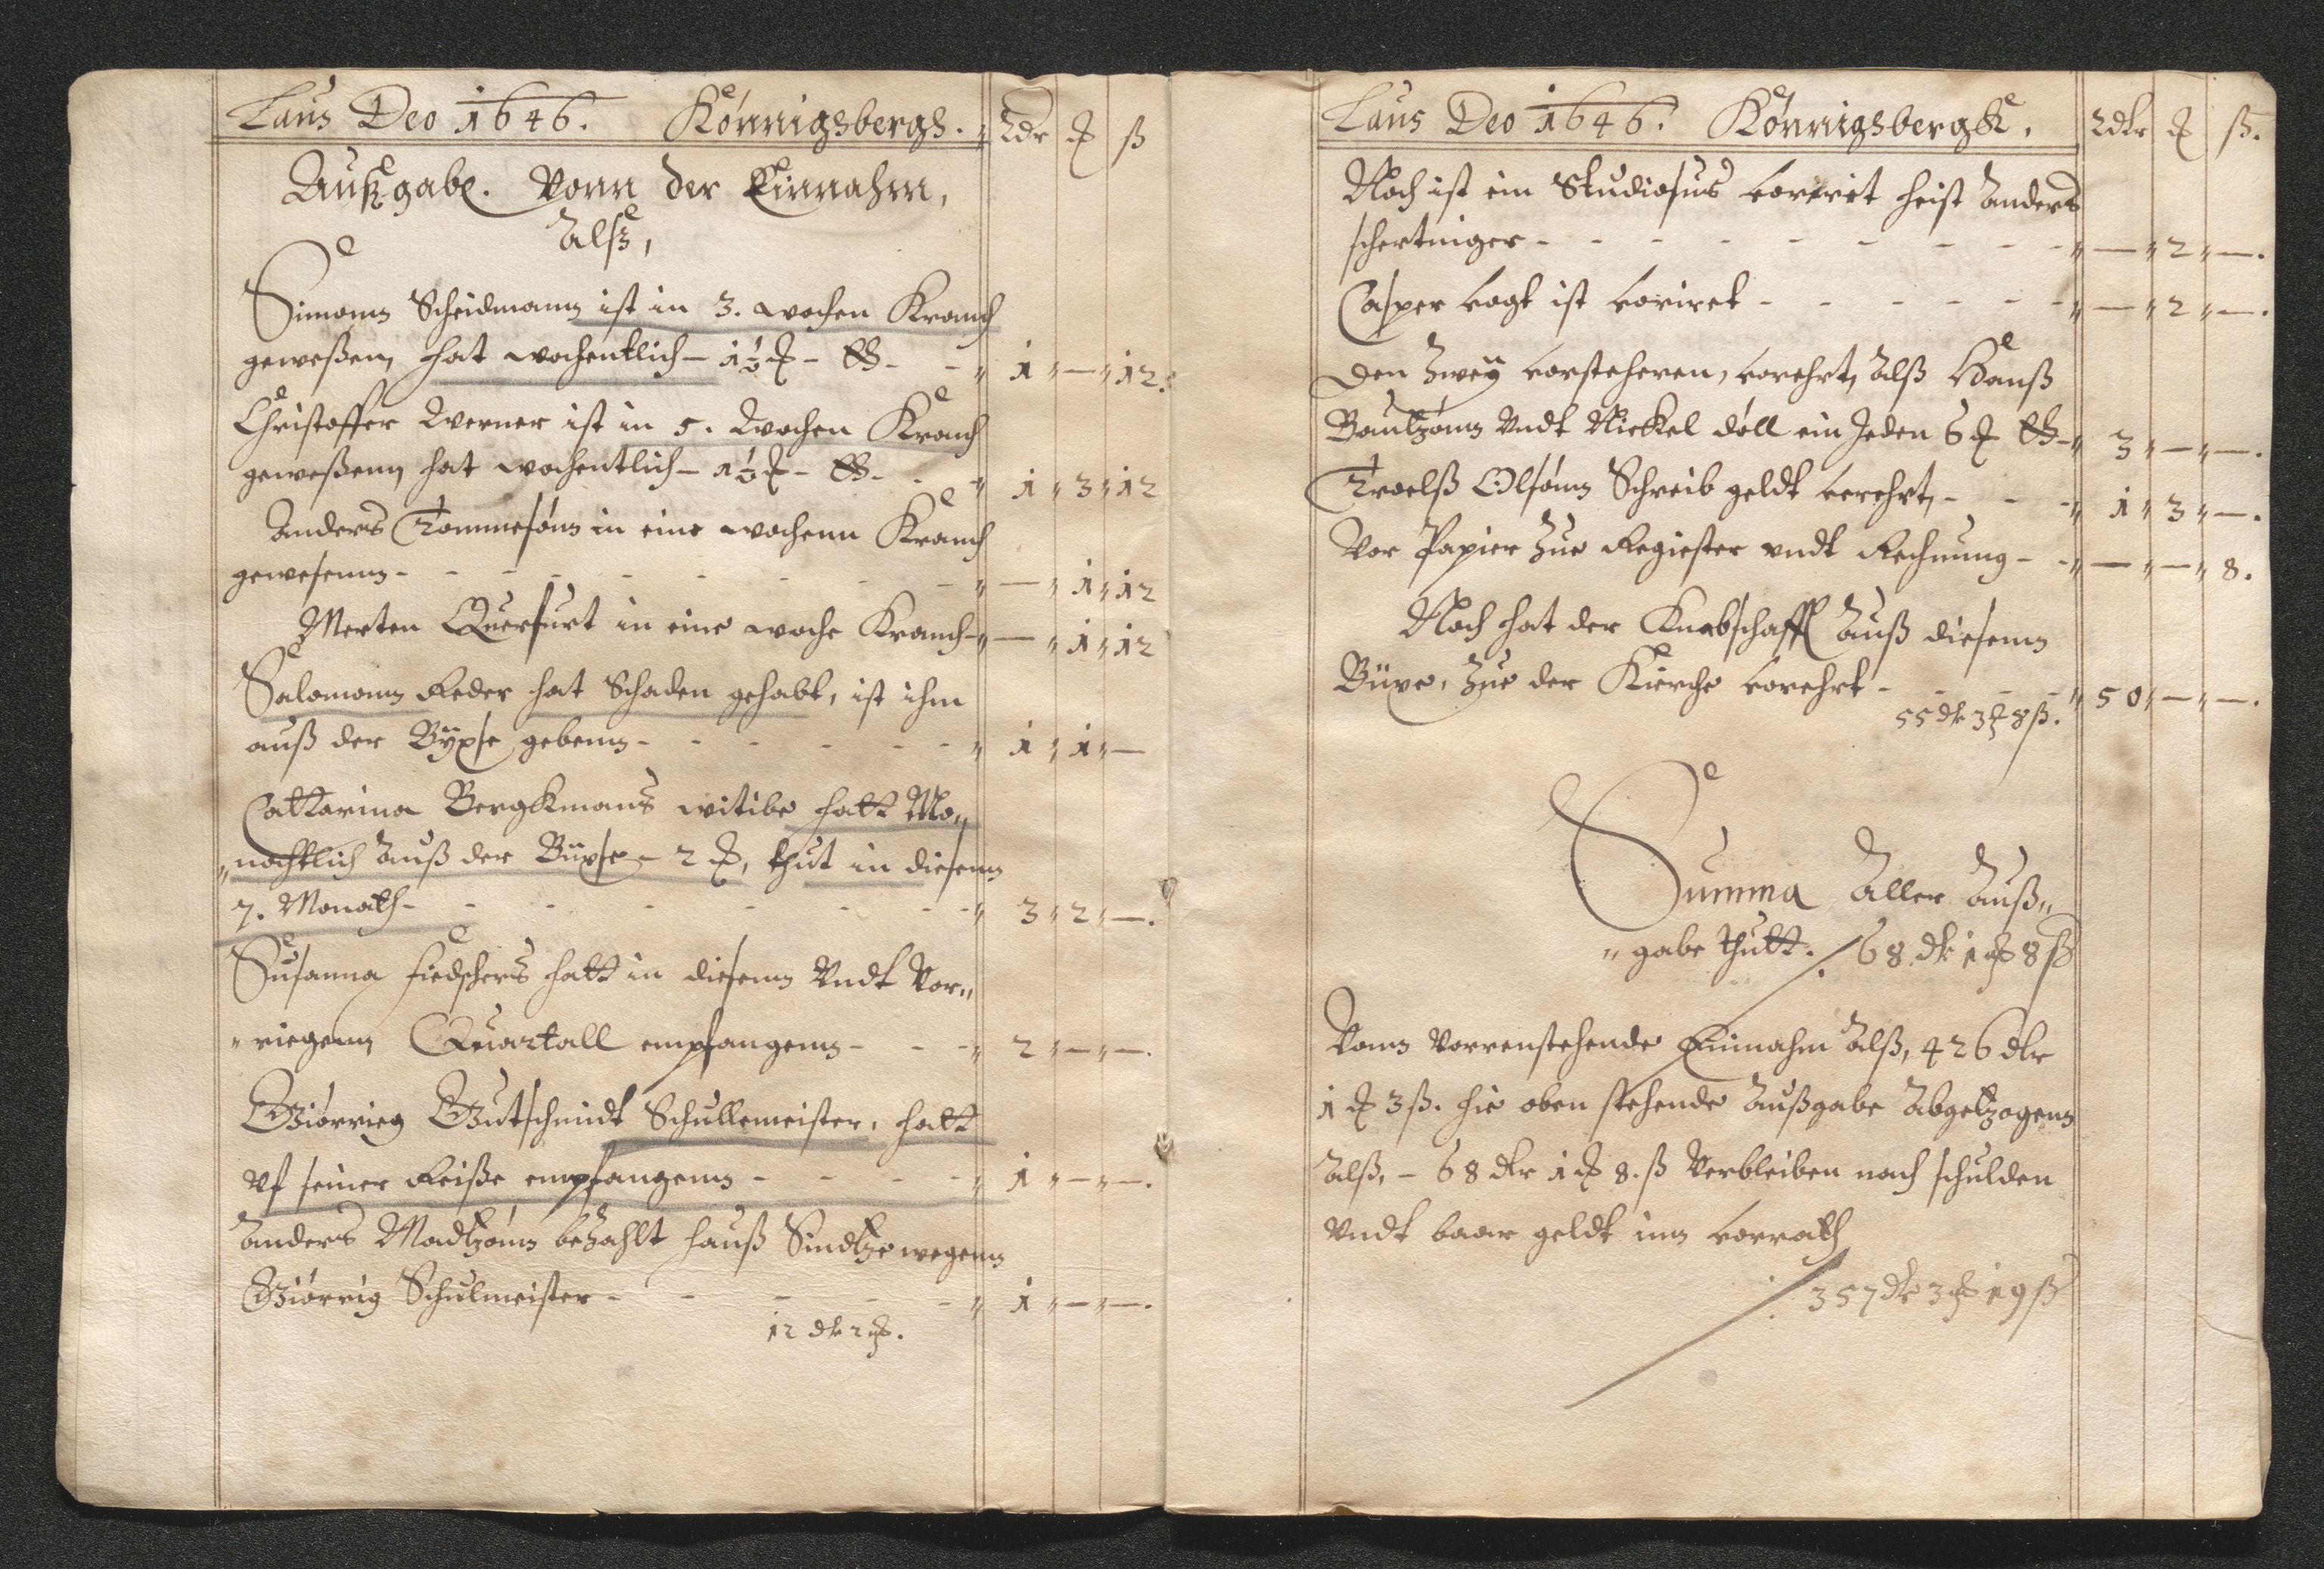 Laus Deo 1646. Kónnigsbergs. Rdr ß
Außgabe. Vonn der Einnahm,
Alß,
Simonn Scheidmann ist in 3. wochen Kranck
geweßen, hat wochentlich - 1½ - - - 1 " — " 12.
Christoffer Werner ist in 5. Wochen Kranck
geweßenn, hat wochentlich - 1½ - - - 1 " 3 " 12
Anders Tommesónn in eine wochenn Kranck
gewesenn - - - - - - - - " — " 1 " 12
Merten Querfurt in eine woche Kranck - " — " 1 " 12
Salomonn Reder hat Schaden gehabt, ist ihm
auß der Büxse gebenn - - - - - - " 1 " 1 " —
Cattarina Bergkmans witibe hatt Mo„
„nachtlich Auß der Büxse - 2 , thut in diesenn
7. Monath - - - - - - - " 3 " 2 " —.
Susanna fiedschers hatt in diesenn Vndt Vor„
„riegenn Quartall empfangenn - - - " 2 " — " —.
Giórrieg Gutschmidt Schullemeister, hatt
Vf seiner Reiße empfangenn - - - - " 1 " — " —.
Anders Madtzónn beZahlt hauß Sindtze wegenn
Giórrig Schulmeister - - - - - " 1 " — " —.
12 dlr 2 .
Laus Deo 1646. Kónnigsbergk. Rdlr ß.
Noch ist ein Studiosus heist Anders
schertinger - - - - - - - - " — " 2 " —.
Casper vogt ist - - - - - " — " 2 " —.
Den Zweÿ vorsteheren, vorehrt, Alß Hanß
Bautzónn Vndt Nickel dóll ein Jeden 6 - " 3 " — " —.
Troelß Olsónn Schreib geldt verehrt, - - - " 1 " 3 " —.
Vor Papier Zue Regiester vndt Rechnung - - " — " — " 8.
Noch hat der Knabschafft Auß diesenn
Büxe, Zue der Kierche vorehrt - - - - " 50 " — " —.
55 dlr 3 8 ß.
Summa Aller Auß„
„gabe thutt. 68 dlr 1 8 ß
Vonn Vorrenstehende Einnahm Alß, 426 dlr
1 3 ß. hie oben stehende Außgabe Abgetzogenn
Alß, - 68 dlr 1 8. ß Verbleiben noch schulden
Vndt baar geldt inn vorrath
357 dlr 3 19 ß